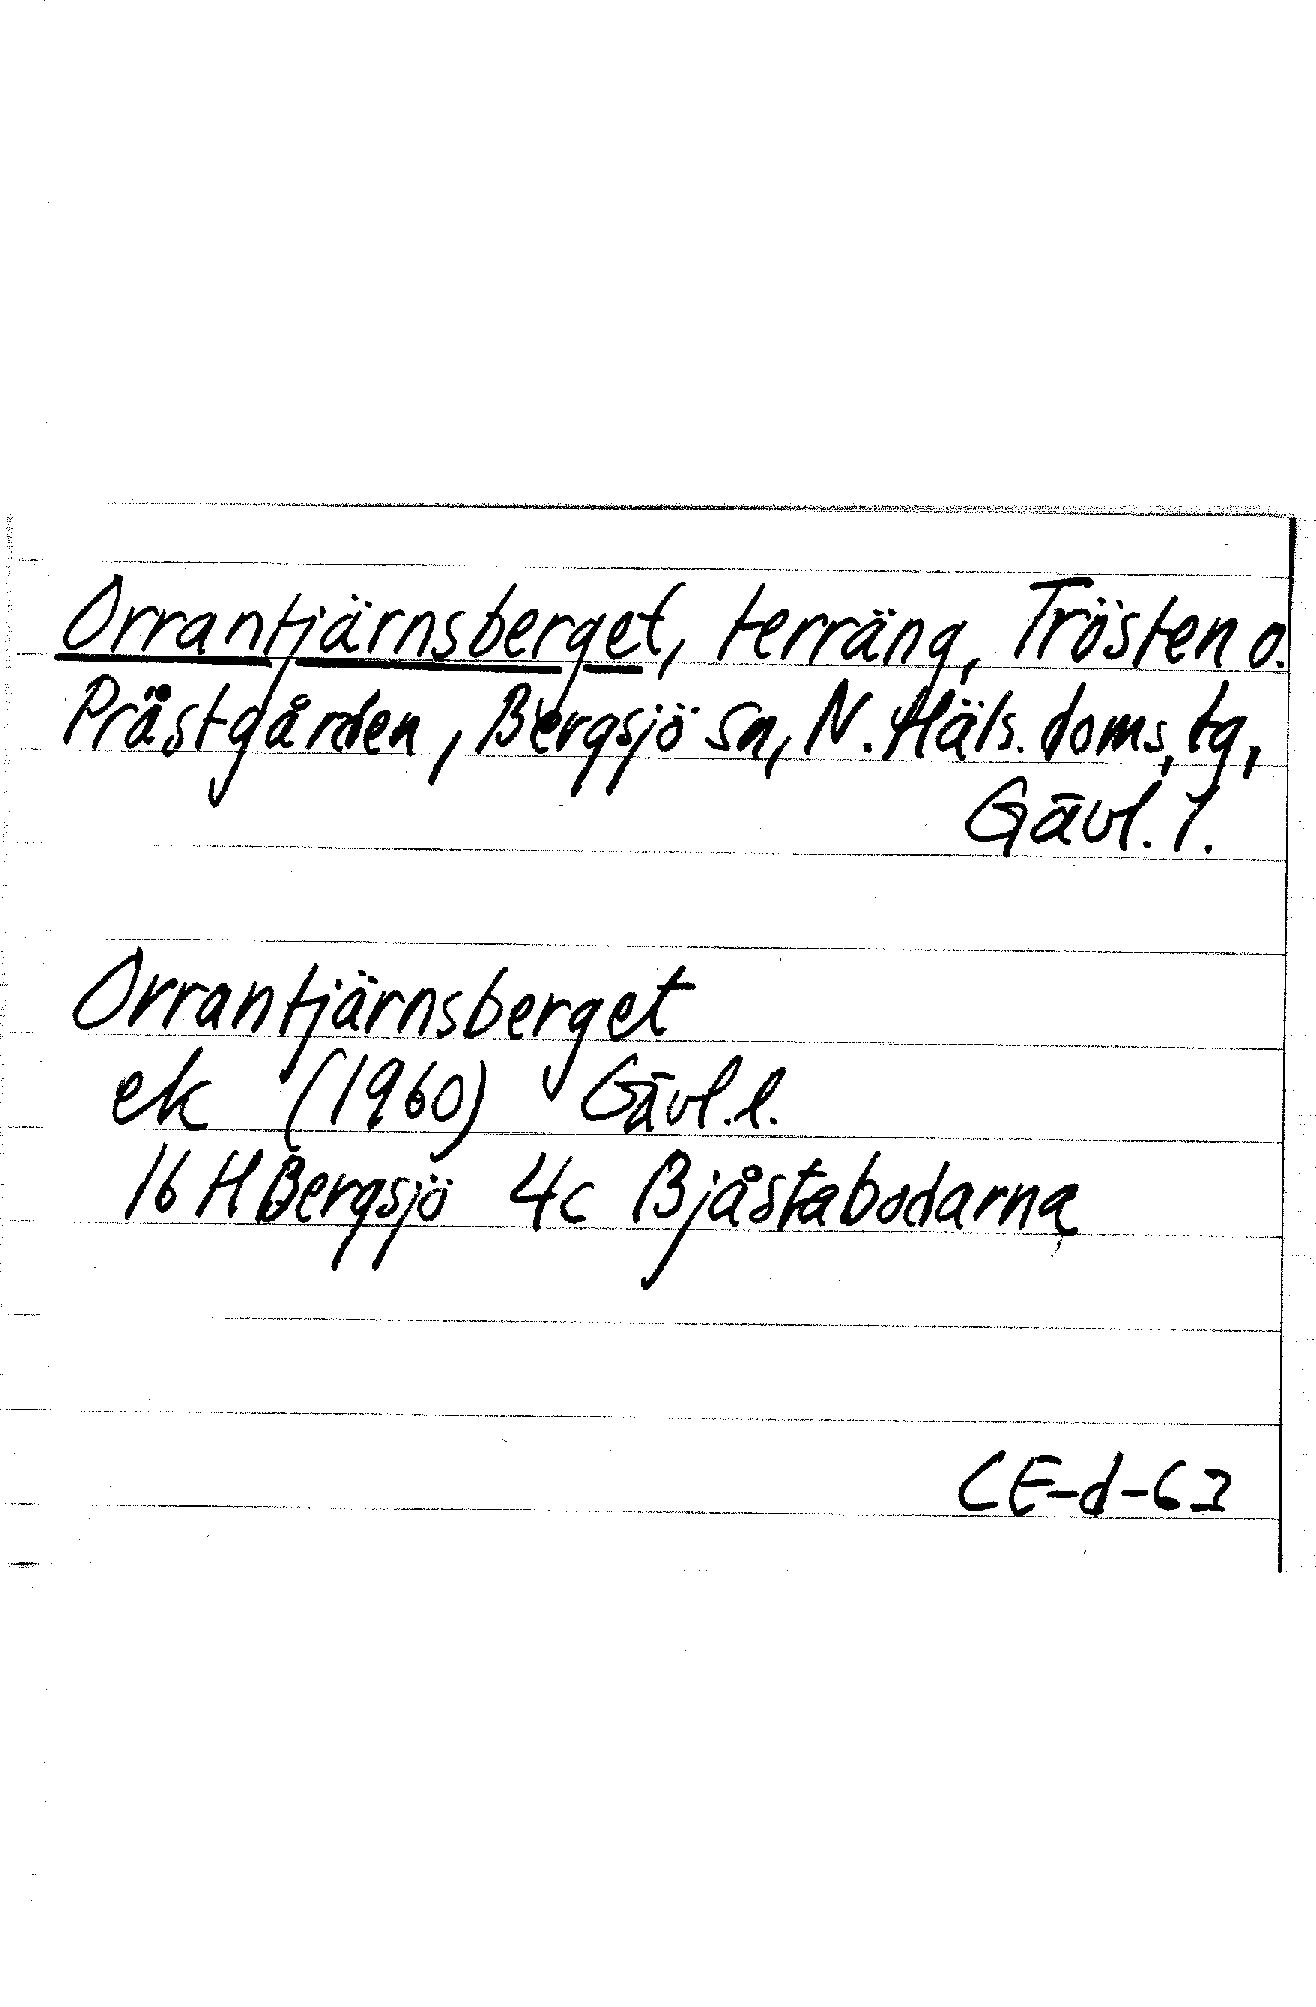 Orrantjärnsberget, terräng, Trösten o.
Prästgården, Bergsjö sn, N. Häls. doms.tg,
Gävl. l.
Orrantjärnsberget
ek (1960) Gävl. l.
16 H Bergsjö 4c Bjåstabodarna
CE-d-63